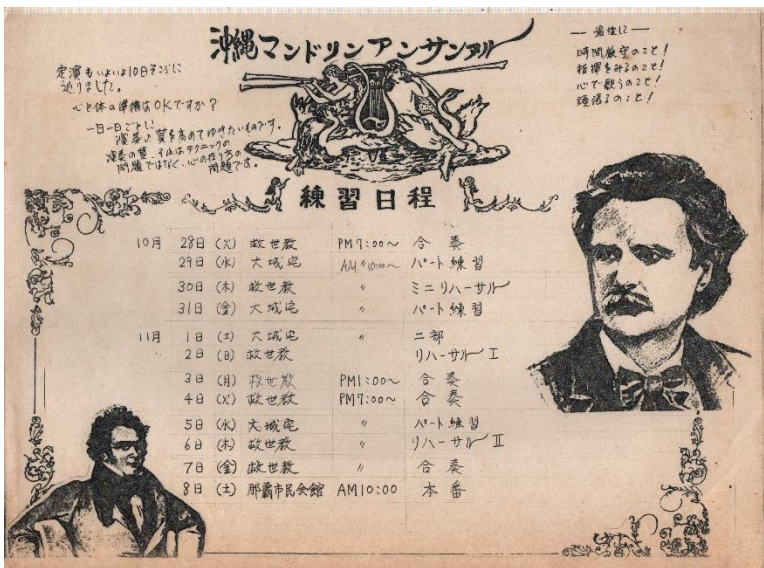 沖縄マンドリンアンサンブル
定演もいよいよ10日そこらに
迫りました。
心と体の準備はOKですか?
一日一日ごとに
演奏の質を高めてゆきたいものです。
演奏の質、それはテクニックの
問題ではなく、心の在り方の
問題です。
― 最後に ―
時間厳守のこと!
指揮をみるのこと!
心で歌うのこと!
頑張るのこと!
練習日程
10月 28日 (火) 救世教 PM7:00~ 合奏
29日 (水) 大城宅 AM〃10:00~ パート練習
30日 (木) 救世教 〃 ミニリハーサル
31日 (金) 大城宅 〃 パート練習
11月 1日 (土) 大城宅 〃 二部
2日 (日) 救世教 リハーサル I
3日 (月) 救世教 PM1:00~ 合奏
4日 (火) 救世教 PM7:00~ 合奏
5日 (水) 大城宅 〃 パート練習
6日 (木) 救世教 〃 リハーサル II
7日 (金) 救世教 〃 合奏
8日 (土) 那覇市民会館 AM10:00 本番